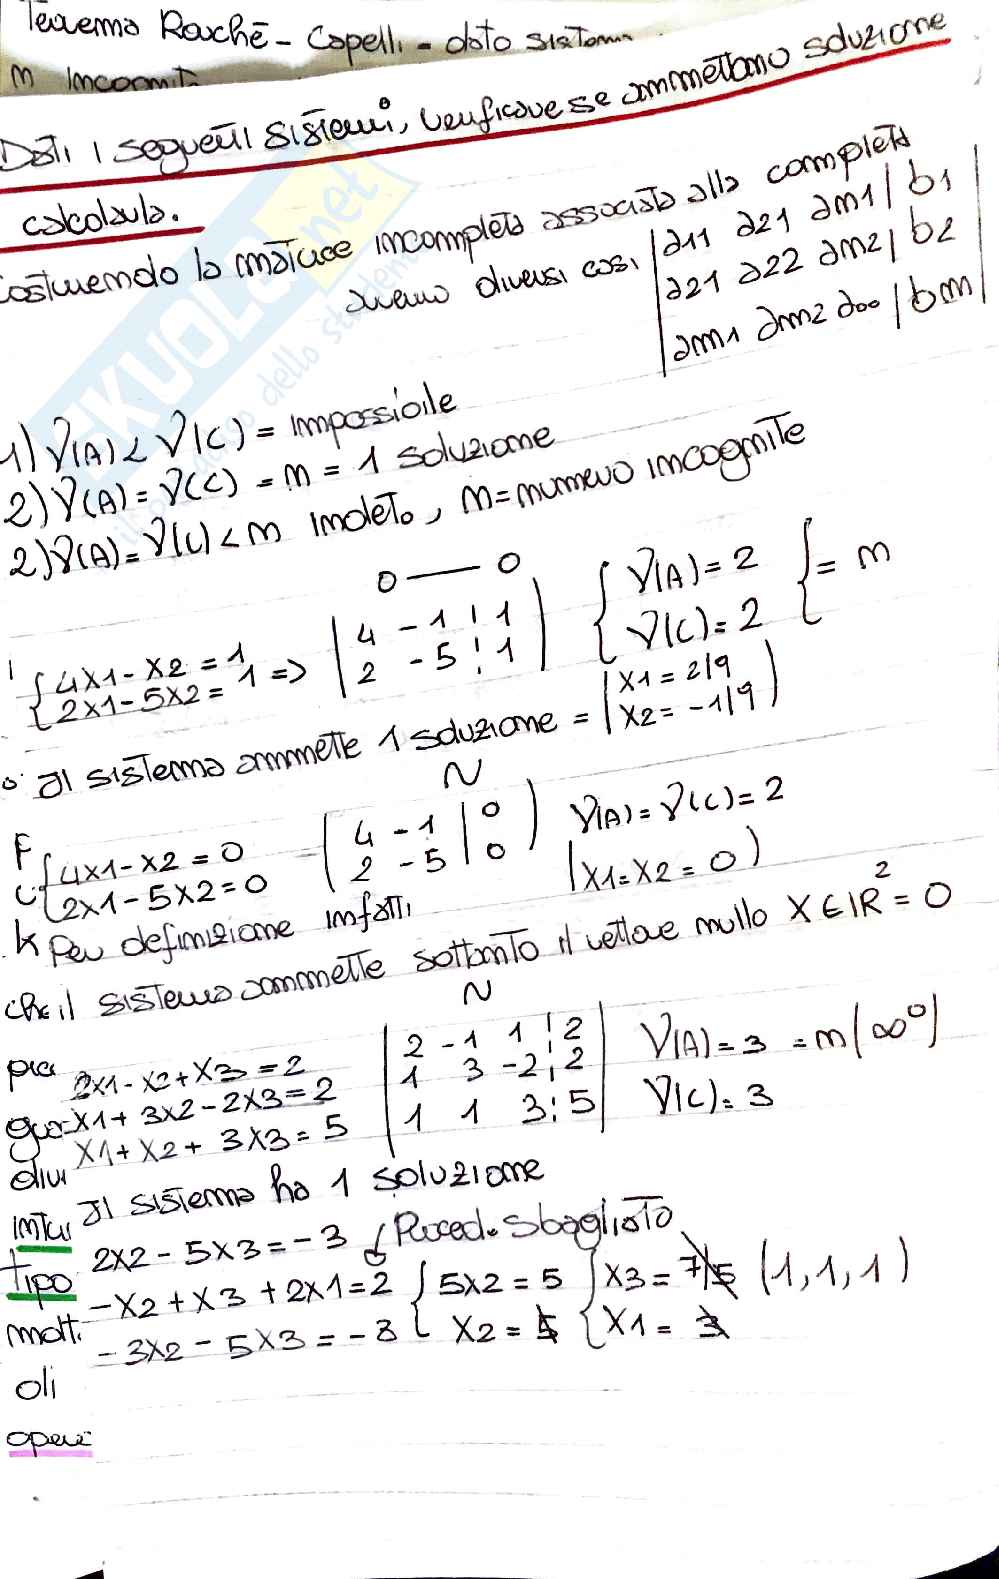 Teorema Rouché - Capelli - dato sistema
m incognit
Dati i seguenti sistemi, verificare se ammettono soluzione
calcolarla.
costruendo la matrice incompleta associata alla completa
avremo diversi casi
|a11 a21 am1 | b1|
|a21 a22 am2 | b2|
|am1 am2 a00 | bm|
SKUOLA.net
il paradiso dello studente
1) r(A) < r(C) = impossibile
2) r(A) = r(C) = m = 1 soluzione
2) r(A) = r(C) < m indet., m = numero incognite
0 — 0
{4x1 - x2 = 1
{2x1 - 5x2 = 1 =>
|4 -1 ¦ 1|
|2 -5 ¦ 1|
{r(A) = 2
{r(C) = 2
} = m
Il sistema ammette 1 soluzione =
|x1 = 2/9
|x2 = -1/9)
N
{4x1 - x2 = 0
{2x1 - 5x2 = 0
(4 -1 | 0)
(2 -5 | 0)
r(A) = r(C) = 2
(x1 = x2 = 0)
Per definizione infatti
che il sistema ammette soltanto il vettore nullo X ∈ IR² = 0
N
2x1 - x2 + x3 = 2
x1 + 3x2 - 2x3 = 2
x1 + x2 + 3x3 = 5
|2 -1 1 ¦ 2|
|1 3 -2 ¦ 2|
|1 1 3 ¦ 5|
r(A) = 3 = m (∞⁰)
r(C) = 3
Il sistema ha 1 soluzione
2x2 - 5x3 = -3
Proced. sbagliato
-x2 + x3 + 2x1 = 2
-3x2 - 5x3 = -3
{5x2 = 5
x2 =
{x3 = 7/5 (1, 1, 1)
{x1 = 3
gua
divi
intur
tipo
molt.
oli
opere